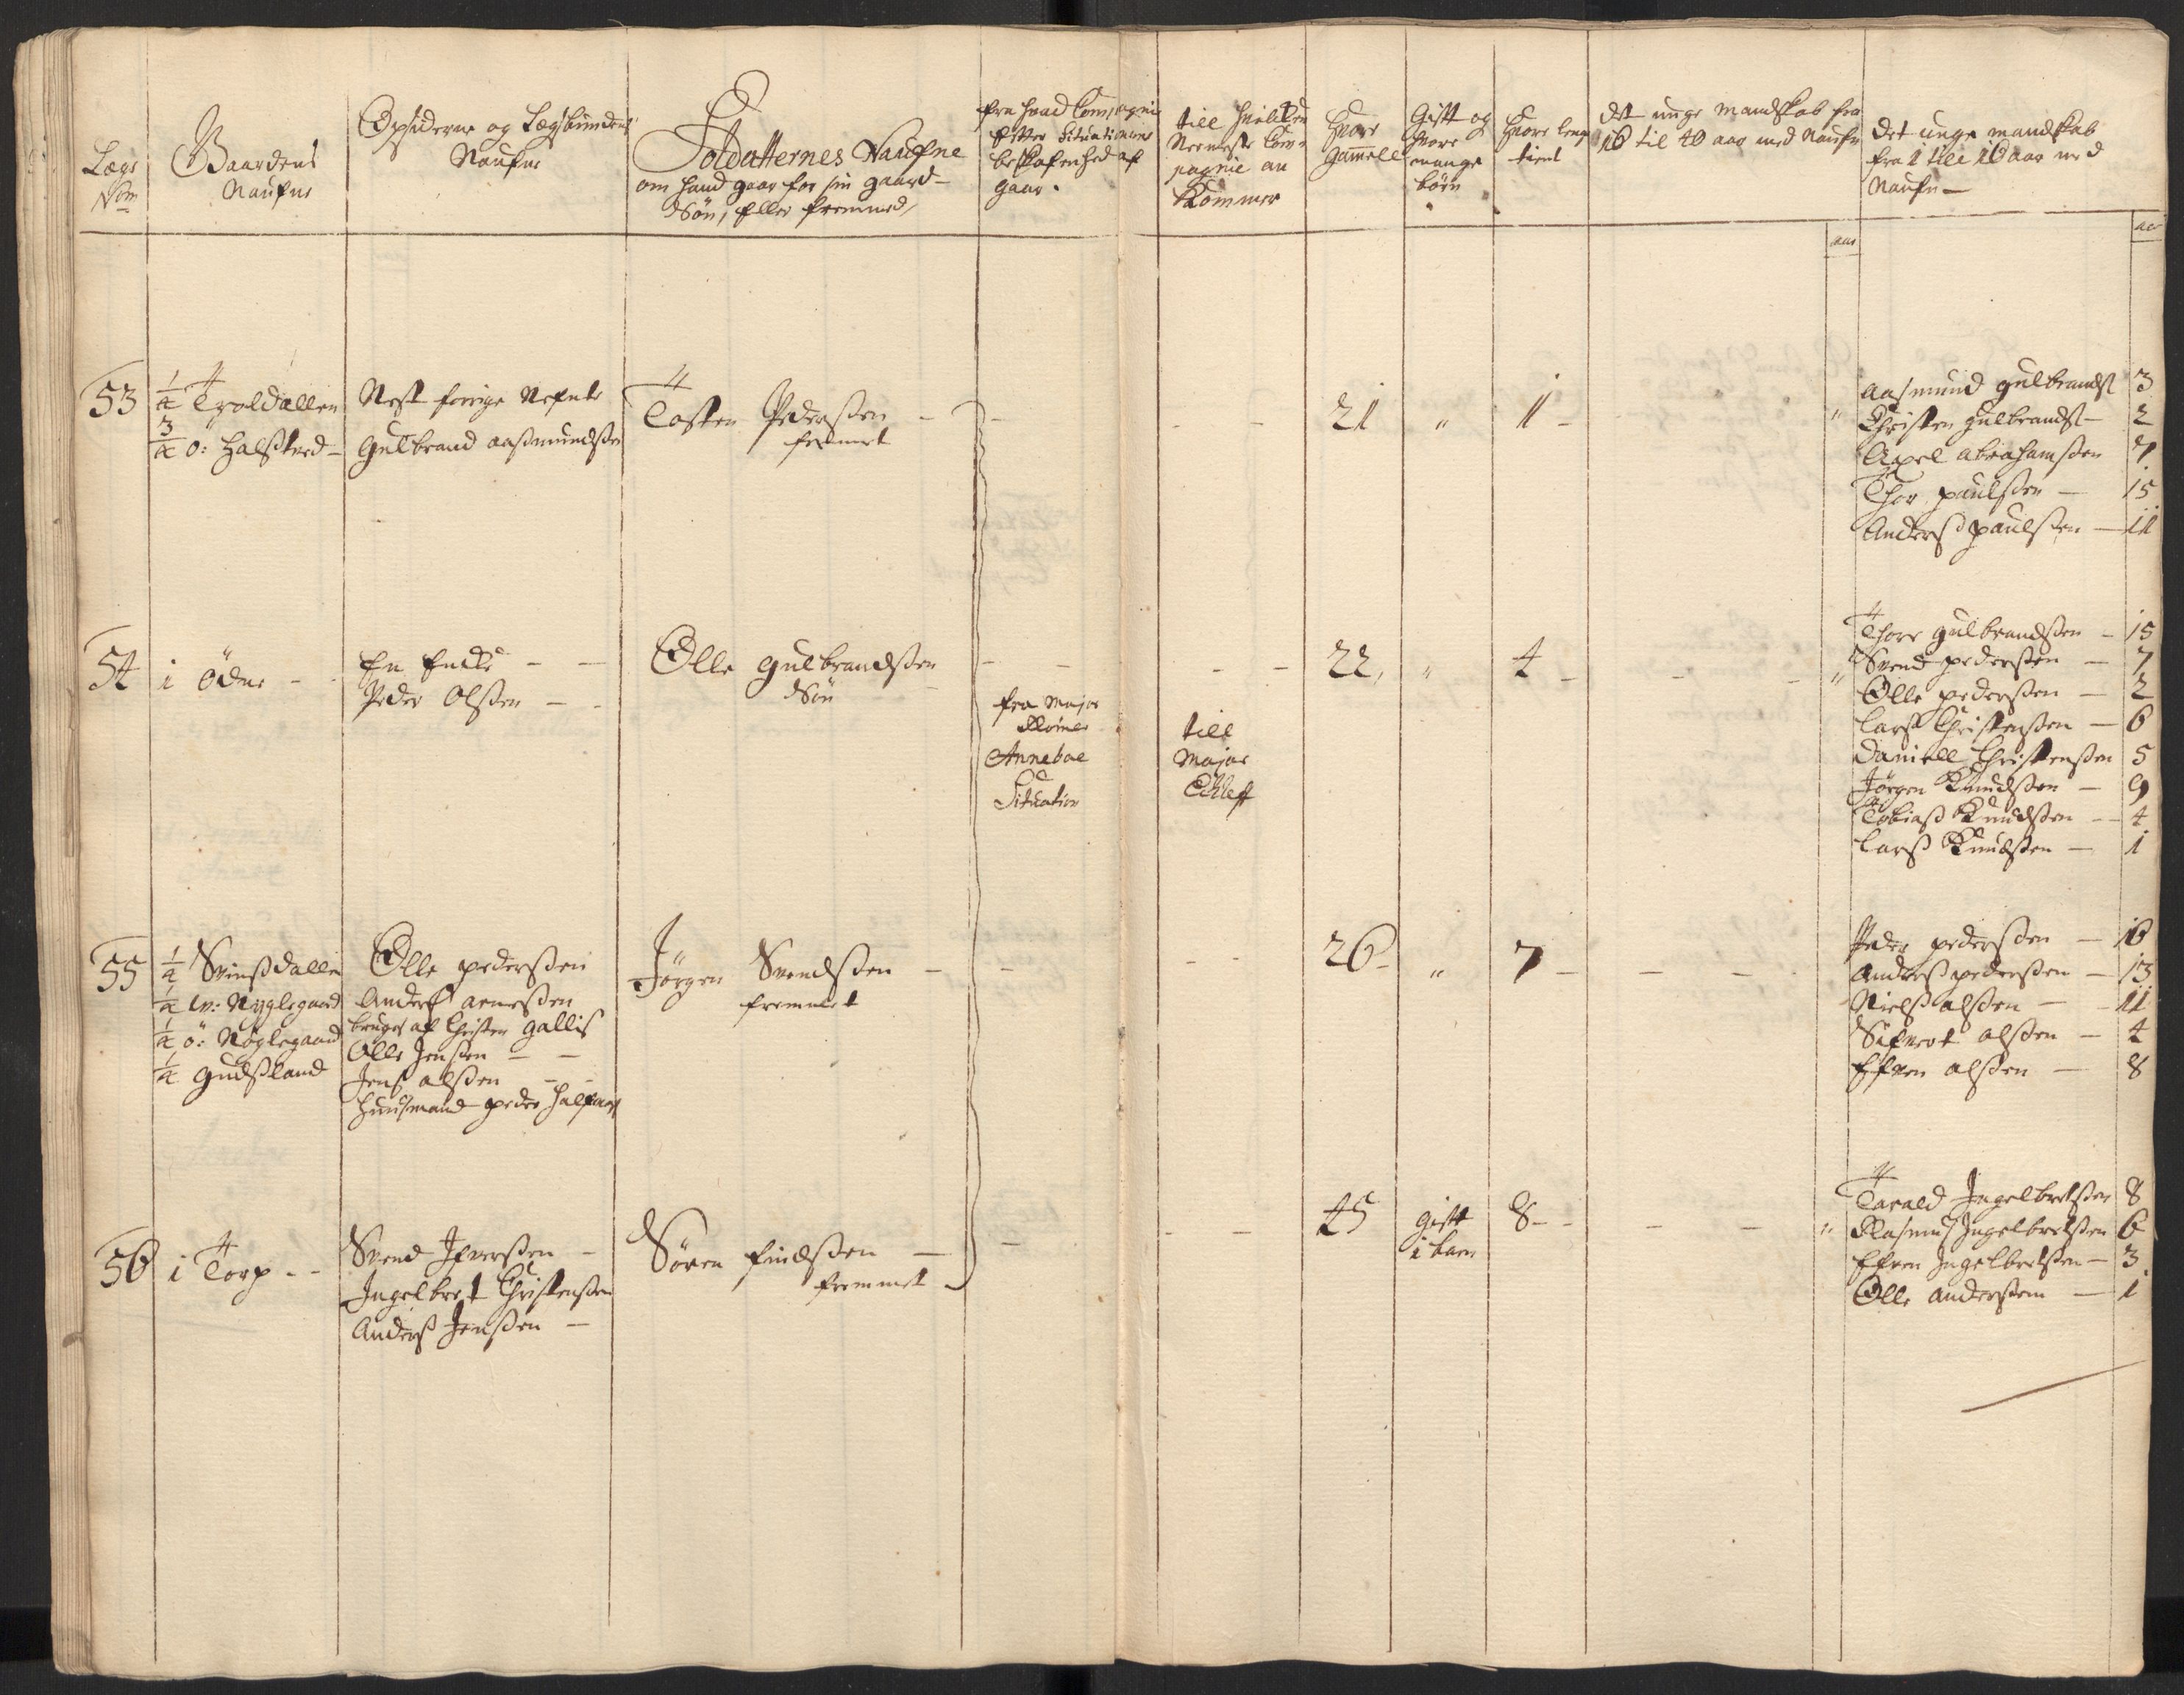 Lægs
No
Gaardens
Naufne
Opsiderne og Lægsbundens
Naufne
Soldatternes Naufne
om hand gaar for sin gaard
Søn, eller fremmed,
fra hvad Compagnie
efter Situationens
beskafenhed af
gaar.
till hvilken
Nermeste Com-
pagnie an
Kommer
Hvor
gammell
Gift og
hvor
mange
børn
Hvor leng
tient
det unge Mandskab fra
16 til 40 aar med Naufn
det unge mandskab
fra 1 till 16 aar med
Naufn
aar
aar
53
1/4 Troldallen
3/4 ö: Halsterd
Nest forrige Nefnte
Gulbrand aasmundsen
Tosten Pedersen
fremmet
21 " 11
"
Aasmund gulbrands 3
Christen gulbrands 2
Axel Abrahamsen
Thor paulsen 15
Anders paulsen 11
54
1 Ödne
En Encke
Peder Olsen
Olle gulbrandsen
Søn
fra Major
Annebae
Situation
till
Major
22, " 4
"
Thore gulbrandsen 15
Svend pedersen 7
Olle pedersen 2
Lars Christensen 6
Daniell Christensen 5
Jørgen Knudsen 9
Tobias Knudsen 4
Lars Knudsen 1
55
1/4 Svinsdallen
1/4 w: Nøglegaard
1/4 ö: Nøglegaard
1/4 Gudsland
Olle pedersen
Anders arnesen
bruges af Christen Gallis
Olle Jensen
Jens alsen
Huusmand peder Halfaars
Jörgen Svendsen
fremmet
26 " 7
Peder pedersen 16
Anders pedersen 13
Niels alsen 11
Sifvert alsen 4
Efven alsen 8
56
1 Torp
Svend Ifversen
Ingelbret Christensen
Anders Jensen
Sören findsen
fremmet
45
gift
1 barn
8
"
Tarald Ingelbretsen 8
Rasmus Ingelbretsen 6
Efven Ingelbretsen 3
Olle andersen 1